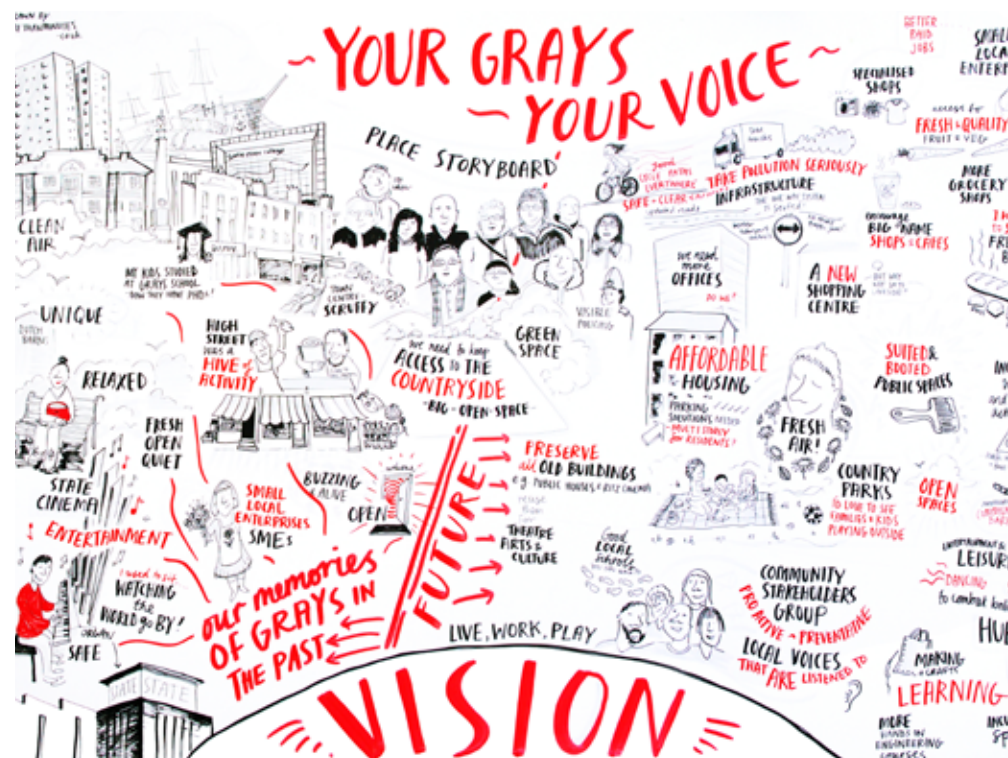 YOUR GRAYS
YOUR VOICE
PLACE STORYBOARD
CLEAN
AIR
MY KIDS STUDIED
AT GRAYS SCHOOL
NOW THEY HAVE PHDs!
TOWN
CENTRE
SCRUFFY
UNIQUE
DUTCH
BARNS
RELAXED
HIGH
STREET
WAS A
HIVE of
ACTIVITY
FRESH
OPEN
QUIET
STATE
CINEMA
ENTERTAINMENT
I used to sit
WATCHING
the
WORLD go BY!
ORGAN
SAFE
STATE STATE
SMALL
LOCAL
ENTERPRISES
SMEs
BUZZING
& ALIVE
OPEN
our memories
OF GRAYS IN
THE PAST
we need to keep
ACCESS to THE
COUNTRYSIDE
BIG - OPEN SPACE
GREEN
SPACE
VISIBLE
POLICING
FUTURE
PRESERVE
all OLD BUILDINGS
e.g. PUBLIC HOUSES & RITZ CINEMA
THEATRE
ARTS &
CULTURE
LIVE, WORK, PLAY
VISION
Good
CYCLE PATHS
EVERYWHERE
SAFE - CLEAR
TAKE POLLUTION SERIOUSLY
INFRASTRUCTURE
we need
more
OFFICES
DO WE?
AFFORDABLE
HOUSING
PARKING
SOLUTIONS NEEDED
MULTI STOREY
for RESIDENTS!
FRESH
AIR!
Good
LOCAL
schools
COMMUNITY
STAKEHOLDERS
GROUP
PROACTIVE → PREVENTATIVE
LOCAL VOICES
THAT ARE LISTENED TO
BETTER
PAID
JOBS
SPECIALISED
SHOPS
access to
FRESH & QUALITY
FRUIT & VEG
MORE
GROCERY
SHOPS
encourage
BIG NAME
SHOPS & CAFES
A NEW
SHOPPING
CENTRE
SUITED &
BOOTED
PUBLIC SPACES
COUNTRY
PARKS
I'D LOVE TO SEE
FAMILIES & KIDS
PLAYING OUTSIDE
OPEN
SPACES
DANCING
MAKING
& CRAFTS
LEARNING
MORE
HANDS IN
ENGINEERING
COURSES